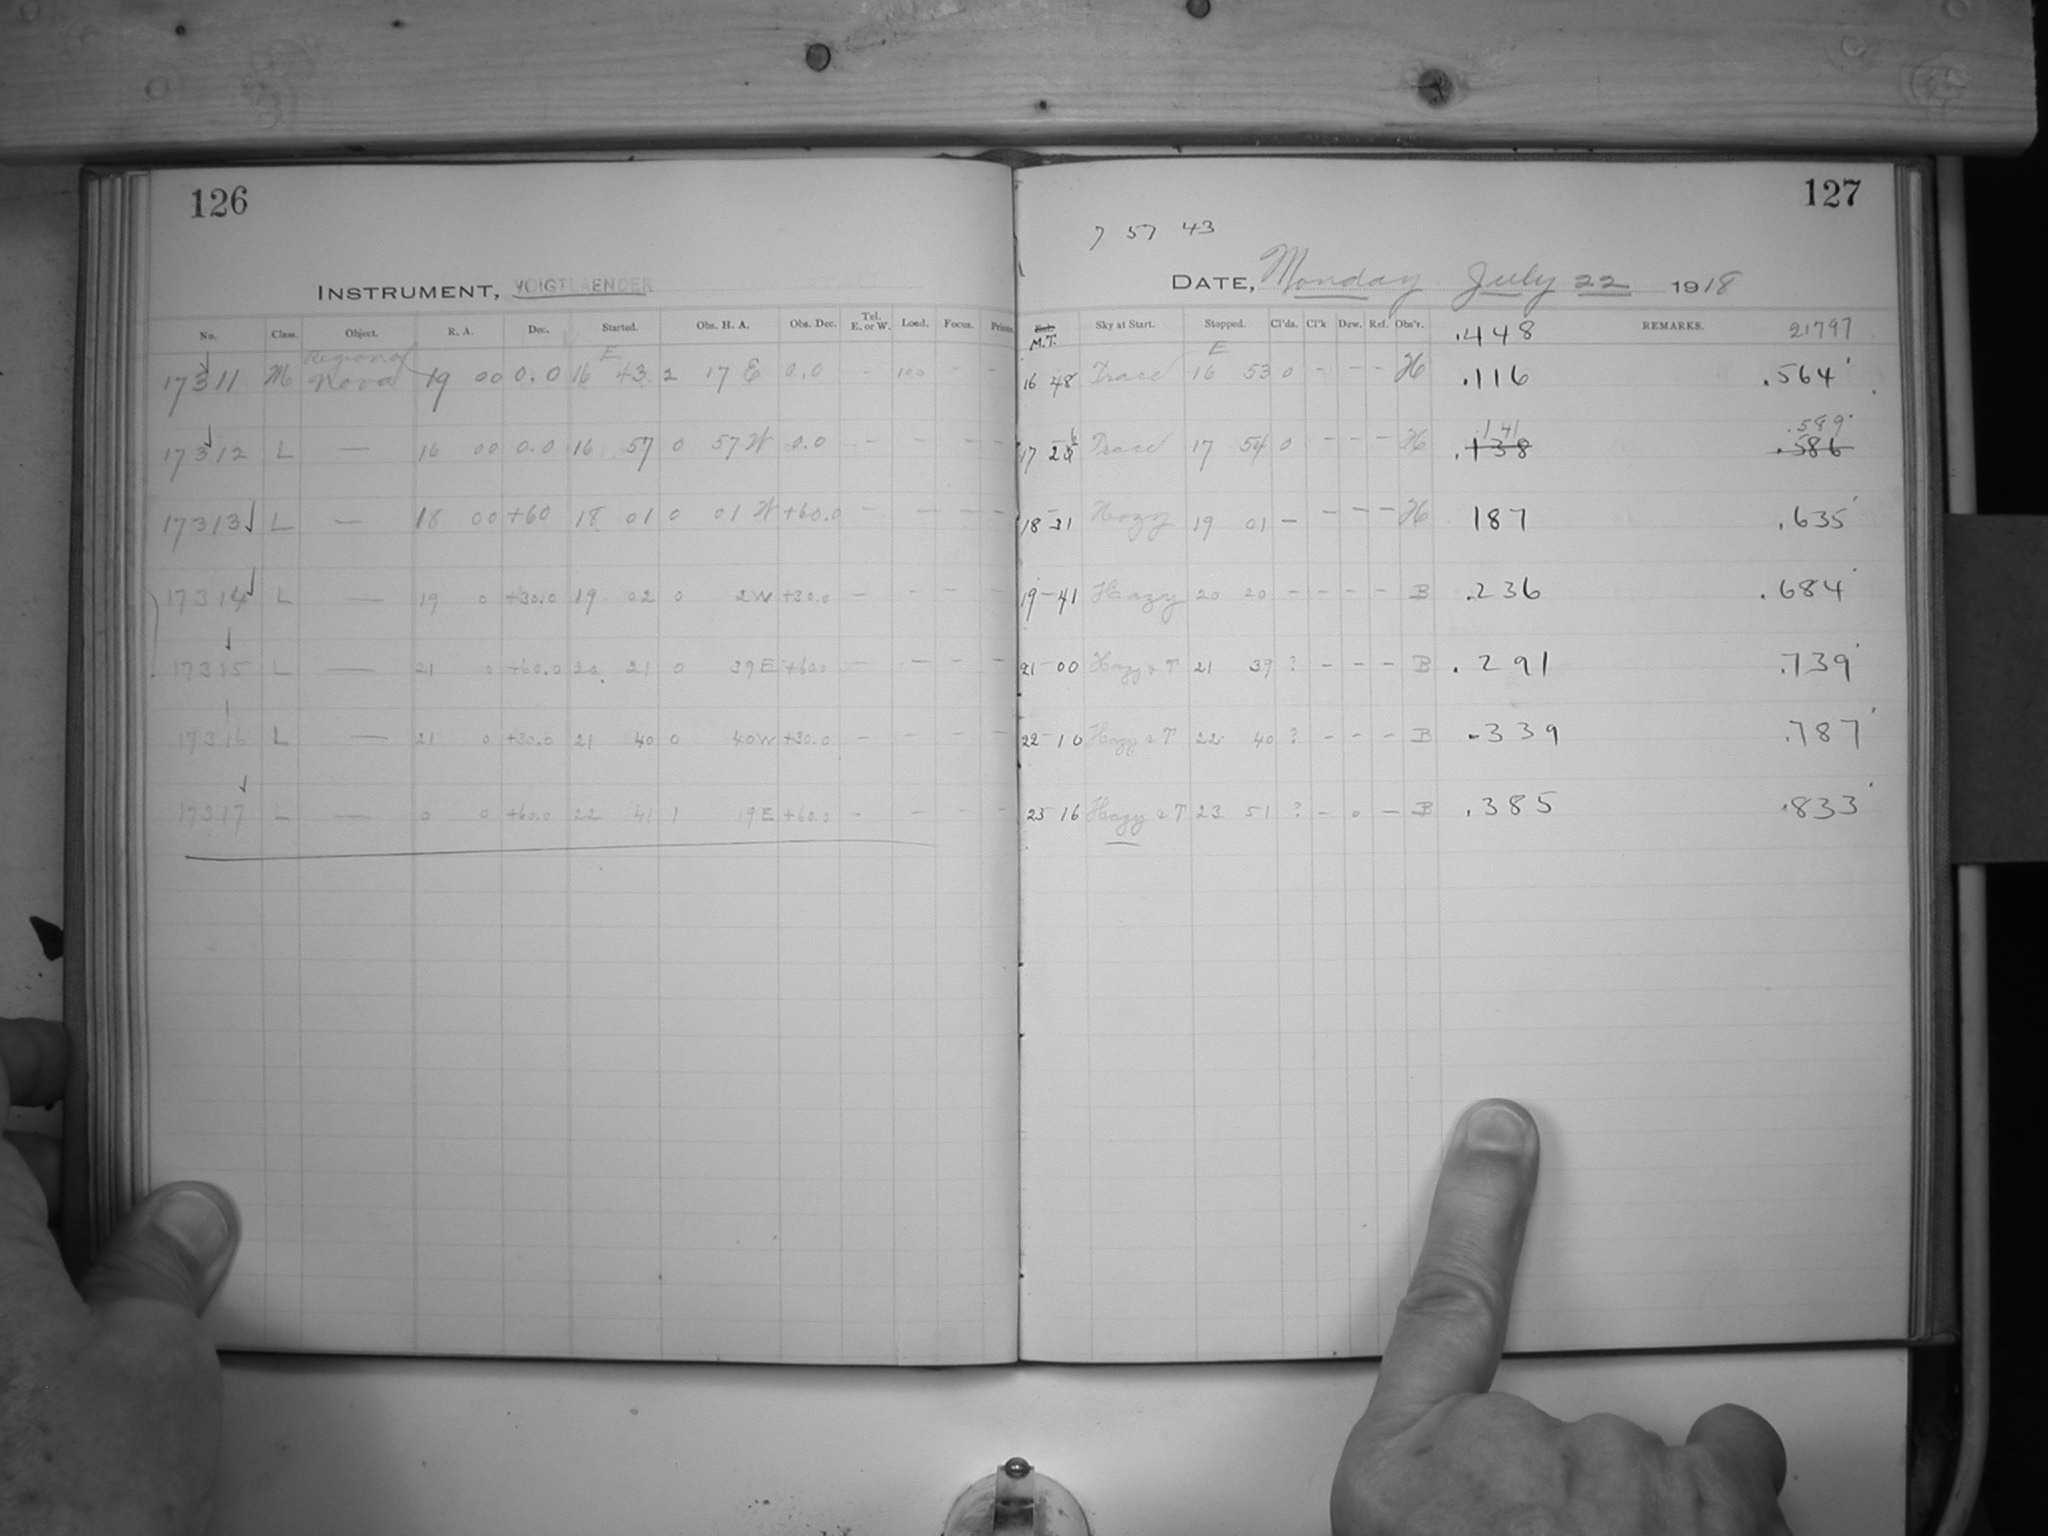 126
INSTRUMENT, VOIGTLAENDER
No. Class. Object. R. A. Dec. Started. Obs. H. A. Obs. Dec. Tel. E. or W. Load. Focus.
17311 M Region of Nova 19 00 0.0 16 43 2 17 E 0.0 - 100 - -
17312 L — 16 00 0.0 16 57 0 57 W 0.0 - - - -
17313 L — 18 00 +60 18 01 0 01 W +60.0 - - - -
17314 L — 19 0 +30.0 19 02 0 2W +30.0 - - - -
17315 L — 21 0 +60.0 20 21 0 39E +60.0 - - - -
17316 L — 21 0 +30.0 21 40 0 40W +30.0 - - - -
17317 L — 0 0 +60.0 22 41 1 19E +60.0 - - - -
127
7 57 43
DATE, Monday July 22 1918
M.T. Sky at Start. Stopped. Cl'ds. Cl'k Dew. Ref. Obs'r. .448 REMARKS. 21797
16 48 Trace E 16 53 0 - - - H .116 .564
.141 .589
17 26 Trace 17 54 0 - - - H .138 .586
18-31 Hazy 19 01 - - - - H 187 .635
19-41 Hazy 20 20 - - - - B .236 .684
21-00 Hazy & T 21 39 ? - - - B .291 .739
22-10 Hazy & T 22 40 ? - - - B .339 .787
23 16 Hazy & T 23 51 ? - o - B .385 .833